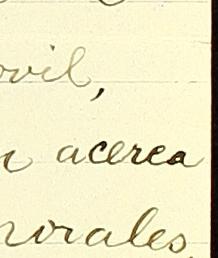 ovil,
n acerca
morales.